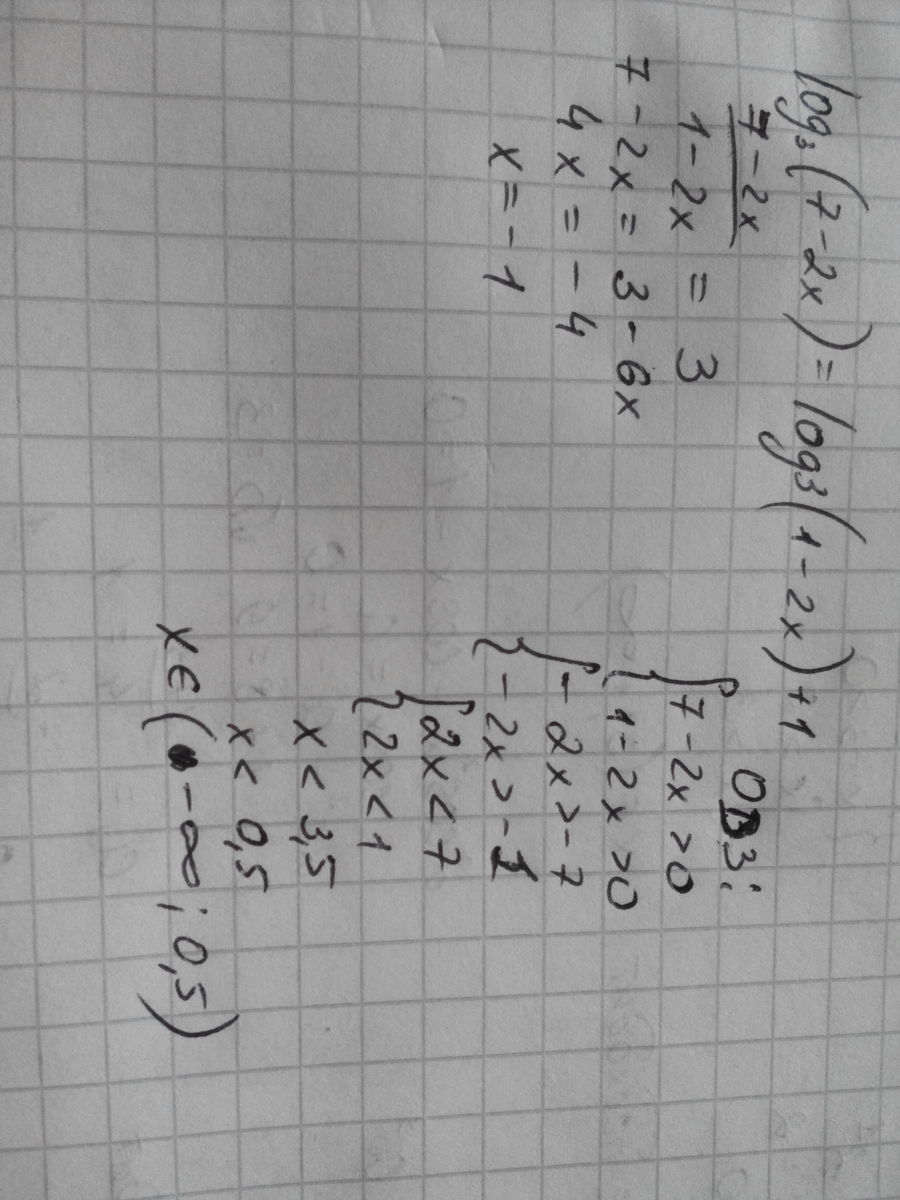 log₃(7-2x)=log₃(1-2x)+1
7-2x
1-2x = 3
7-2x = 3-6x
4x = -4
x = -1
ОДЗ:
{7-2x>0
1-2x>0
{-2x>-7
-2x>-1
{2x<7
2x<1
x<3,5
x<0,5
x∈(-∞;0,5)